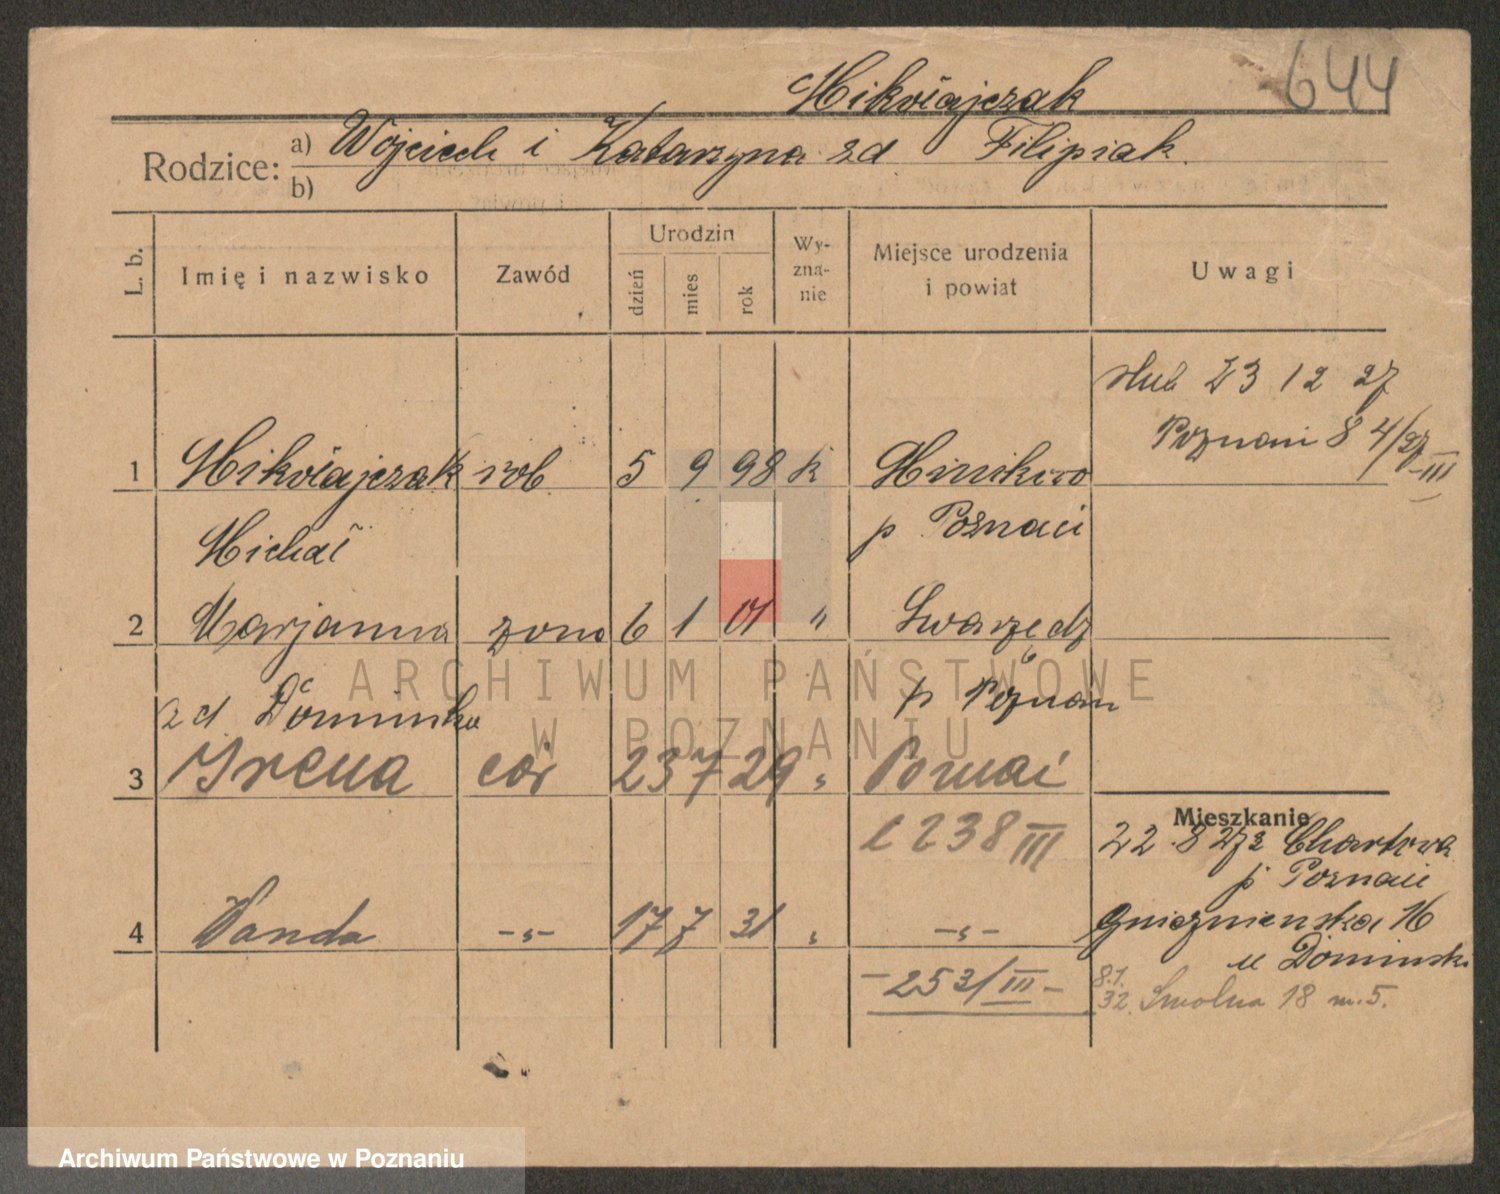 644
Mikołajczak
Rodzice: a) Wojciech i Katarzyna zd Filipiak
b)
L. b. Imię i nazwisko Zawód Urodzin dzień mies rok Wyznanie Miejsce urodzenia i powiat Uwagi
ślub 23 12 27
Poznań 84/27 III
1 Mikołajczak rob 5 9 98 k Minikowo
Michał p Poznań
2 Marjanna żona 6 1 01 " Swarzędz
zd Domińska p Poznań
3 Irena cór 23 7 29 " Poznań
238 III
Mieszkanie
22 8 27 z Chartowa
p Poznań
4 Wanda -"- 17 7 31 " -"- Gnieznienska 16
u Dominski
-253/III-
8.1.
32. Smolna 18 m. 5.
ARCHIWUM PAŃSTWOWE
W POZNANIU
Archiwum Państwowe w Poznaniu